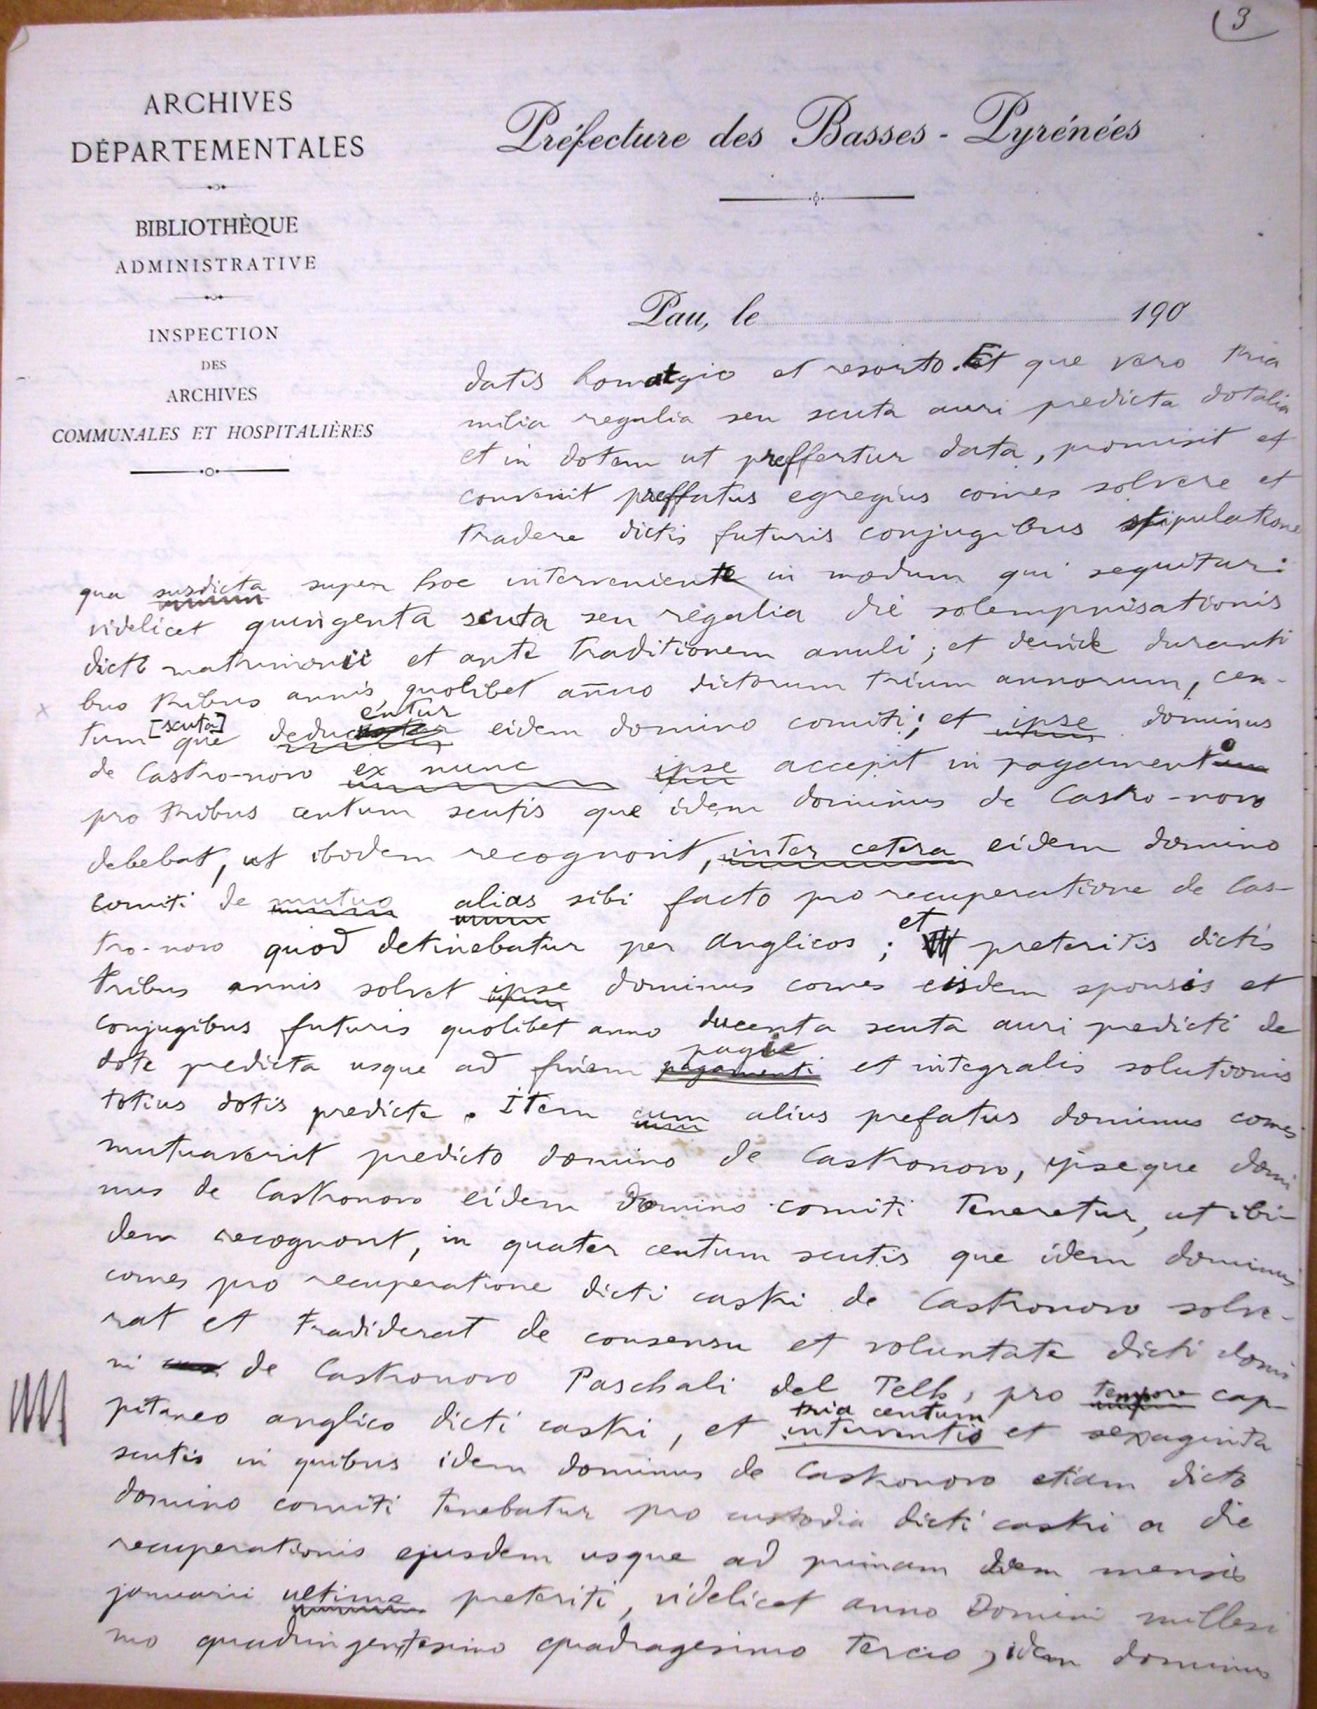 3
ARCHIVES
DÉPARTEMENTALES
BIBLIOTHÈQUE
ADMINISTRATIVE
INSPECTION
DES
ARCHIVES
COMMUNALES ET HOSPITALIÈRES
Préfecture des Basses-Pyrénées
Pau, le 190
datis homatgio et resorto. Et que vero tria
milia regalia seu scuta auri predicta dotalia
et in dotem ut preffertur data, promisit et
convenit preffatus egregius comes solvere et
tradere dictis futuris conjugibus stipulatione
qua susdicta super hoc interveniente in modum qui sequitur:
videlicet quingenta scuta seu regalia die solempnisationis
dicti matrimonii et ante traditionem anuli; et deinde duranti
bus tribus annis quolibet anno dictorum trium annorum, cen-
tum [scuta] que deducentur eidem domino comiti; et ipse dominus
de Castro-novo ex nunc ipse accepit in pagamento
pro tribus centum scutis que idem dominus de Castro-novo
debebat, ut ibidem recognovit, inter cetera eidem domino
comiti de mutuo alias sibi facto pro recuperatione de Cas-
tro-novo quod detinebatur per anglicos; et preteritis dictis
tribus annis solvet ipse dominus comes eisdem sponsis et
conjugibus futuris quolibet anno ducenta scuta auri predicti de
dote predicta usque ad finem pagamenti pagie et integralis solutionis
totius dotis predicte. Item cum alius prefatus dominus comes
mutuaverit predicto domino de Castronovo, ipseque domi
nus de Castronovo eidem domino comiti teneretur, ut ibi-
dem recognovit, in quater centum scutis que idem dominus
comes pro recuperatione dicti castri de Castronovo solve-
rat et tradiderat de consensu et voluntate dicti domi
ni de Castronovo Paschali del Telh, pro tempore cap-
pitaneo anglico dicti castri, et interventis tria centum et sexaginta
scutis in quibus idem dominus de Castronovo etiam dicto
domino comiti tenebatur pro custodia dicti castri a die
recuperationis ejusdem usque ad primam diem mensis
januarii ultime preteriti, videlicet anno Domini millesi
mo quadringentesimo quadragesimo tercio, idem dominus